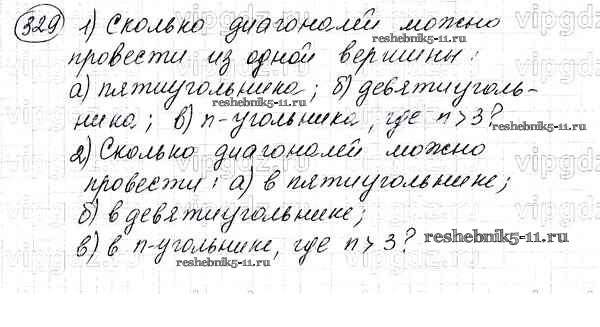 329 1) Сколько диагоналей можно
провести из одной вершины:
а) пятиугольника; б) девятиуголь-
ника; в) n-угольника, где n > 3?
2) Сколько диагоналей можно
провести: а) в пятиугольнике;
б) в девятиугольнике;
в) в n-угольнике, где n > 3?
reshebnik5-11.ru
reshebnik5-11.ru
reshebnik5-11.ru
reshebnik5-11.ru
reshebnik5-11.ru